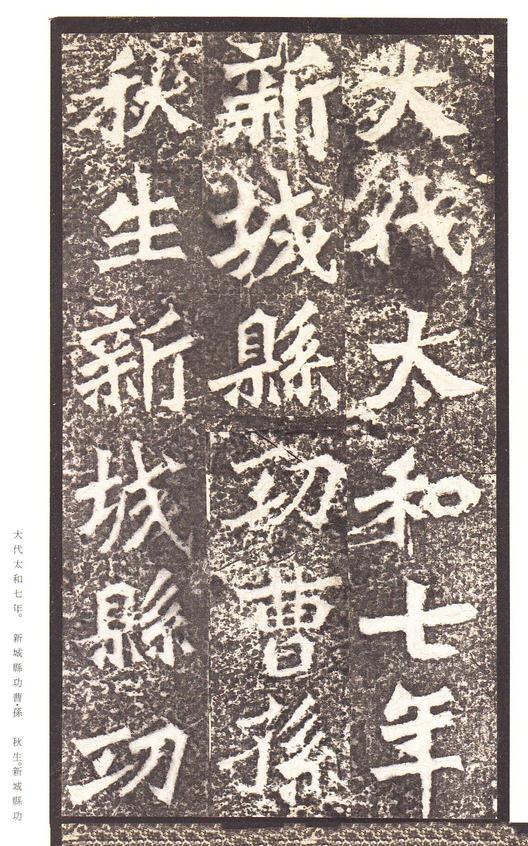 大代太和七年
新城縣功曹孫
秋生新城縣功
大代太和七年。 新城縣功曹孫 秋生。新城縣功